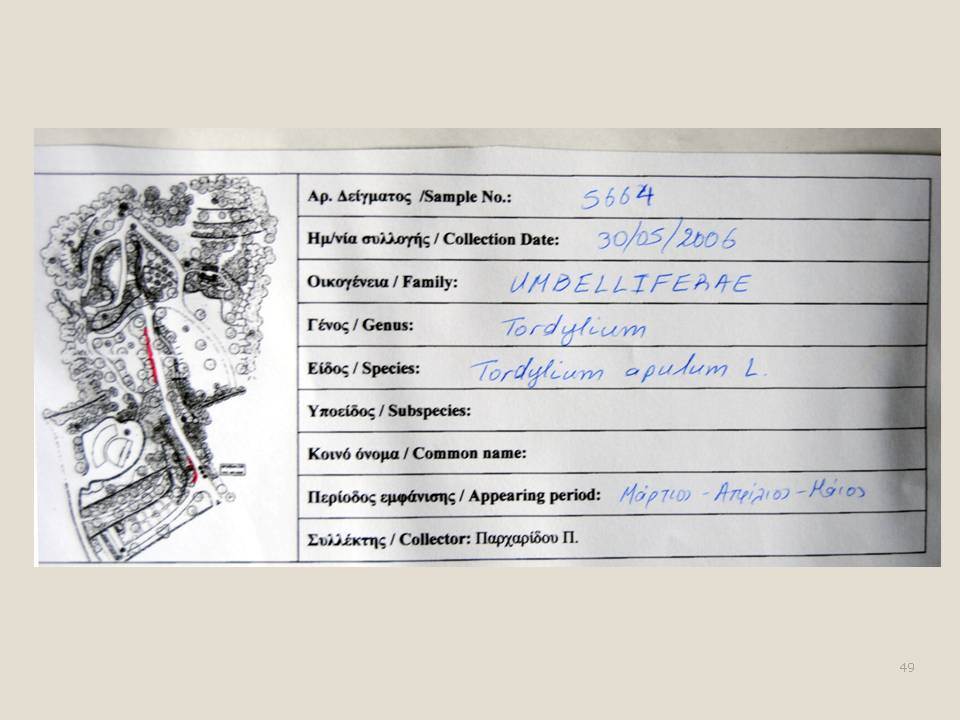 Αρ. Δείγματος /Sample No.: 5664
Ημ/νία συλλογής / Collection Date: 30/05/2006
Οικογένεια / Family: UMBELLIFERAE
Γένος / Genus: Tordylium
Είδος / Species: Tordylium apulum L.
Υποείδος / Subspecies:
Κοινό όνομα / Common name:
Περίοδος εμφάνισης / Appearing period: Μάρτιος - Απρίλιος - Μάιος
Συλλέκτης / Collector: Παρχαρίδου Π.
49